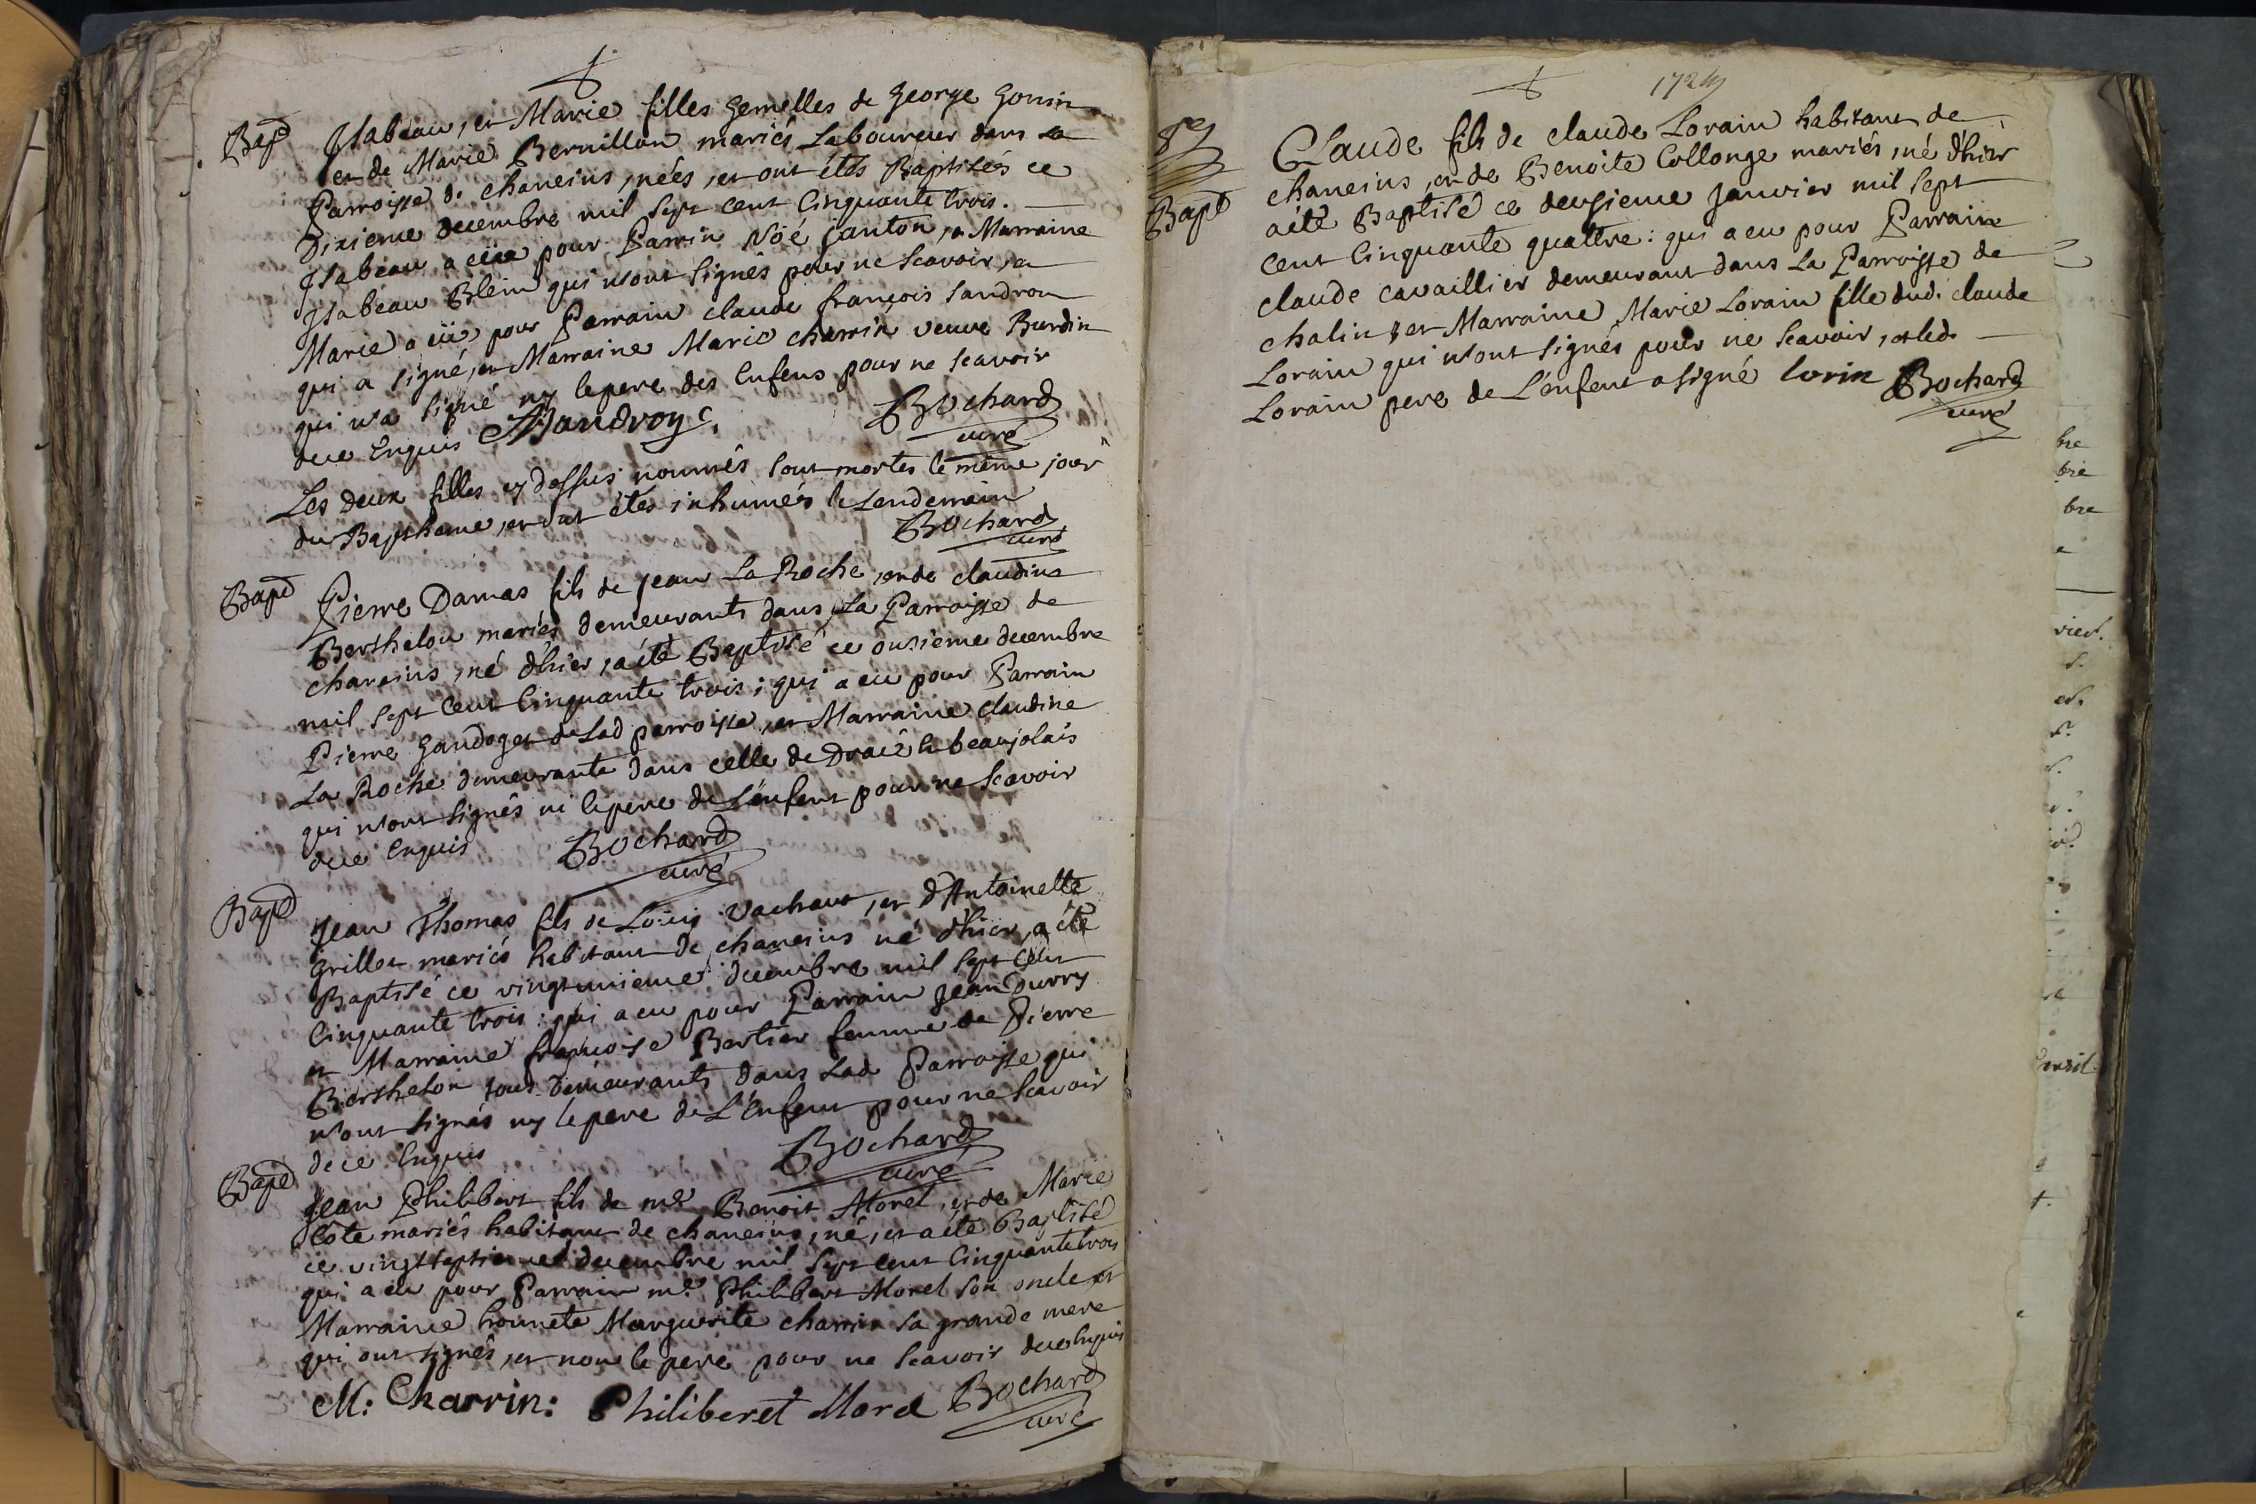 Bap
Isabeau, et Marie filles gemelles de george gonin
et de Marie Bernillon mariés Laboureur dans La
Parroisse de chaneins, nées, et ont étés Baptisés ce
Dixieme decembre mil sept cent Cinquante trois.
Isabeau a eüe pour Parrin Nöé janton, et Marraine
Isabeau Blein qui n'ont signés pour ne scavoir, et
Marie a eüe pour Parrain claude françois sandron
qui a signé, et Marraine Marie charrin veuve Burdin
qui n'a signé ny le pere des Enfens pour ne scavoir
de ce Enquis Bochard
curé
Les deux filles cy dessus nommés sont mortes le même jour
du Baptheme, et ont étés inhumés le Lendemain
Bochard
curé
Bapt
Pierre Damas fils de jean La Roche, et de claudine
Berthelon mariés demeurants dans La Parroisse de
chaneins, né d'hier, a été Baptisé ce onsieme decembre
mil sept Cent Cinquante trois; qui a eu pour Parrain
Pierre gandoger de Lad parroisse, et Marraine Claudine
La Roche demeurante dans celle de Dracé le beaujolais
qui n'ont signés ni le pere de L'enfent pour ne scavoir
de ce Enquis Bochard
curé
Bapt
Jean Thomas fils de Loüis Vachant, et d'Antoinette
Grillet mariés habitant de chaneins né d'hier, a été
Baptisé ce vingtunieme decembre mil sept Cent
Cinquante trois: qui a eu pour Parrain Jean Durry
et Marraine françoise Bertier femme de Pierre
Berthelon tous Demeurants dans Lad Parroisse qui
n'ont signés ny le pere de L'Enfent pour ne scavoir
de ce Enquis Bochard
curé
Bapt
Jean Philibert fils de mr Benoit Morel, et de Marie
Côte mariés habitant de chaneins, né, et a été Baptisé
ce vingtseptieme decembre mil sept cent Cinquante trois
qui a eu pour Parrain mr Philibert Morel son oncle et
Marraine honnete Marguerite charrin sa grande mere
qui ont signés, et non le pere pour ne scavoir de ce Enquis
M: Charrin: Philiberet Morel Bochard
curé
Bapt
Claude fils de claude Lorain habitant de
chaneins, et de Benoite Collonge mariés, né d'hier
a été Baptisé ce deusieme janvier mil sept
cent Cinquante quattre: qui a eu pour Parrain
claude cavaillier demeurant dans La Parroisse de
chalin; et Marraine Marie Lorain fille dud. claude
Lorain qui n'ont signés pour ne scavoir, et led.
Lorain pere de L'enfent a signé lorin Bochard
curé